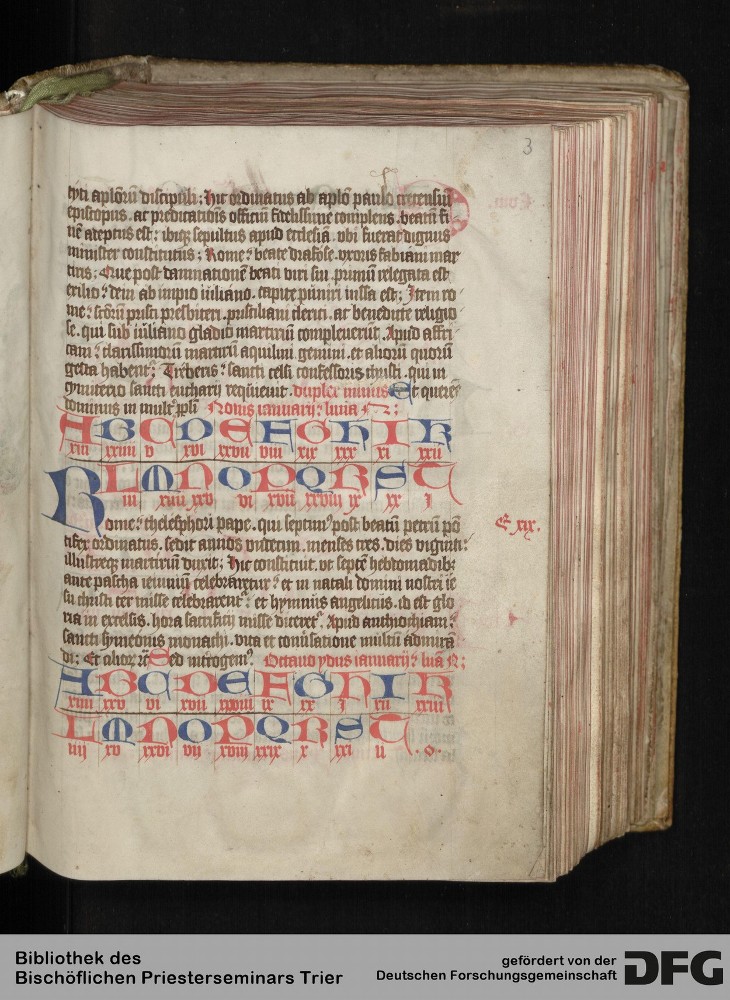 3
tyti aploꝝ discipuli ; Hic ordinatus ab aplo paulo cretensiū
episcopus . ac predicationis officiū fidelissime complens . beatū fi
nē adeptus est ; ibiq; sepultus apud ecclesiā . vbi fuerat dignus
minister constitutus ; Rome : beate dafrose . vxoris fabiani mar
tiris ; Que post damnationē beati viri sui . primū relegata est
exilio : dein ab impio iuliano . capite puniri iussa est ; Item ro
me : sc̄orū prisci presbiteri . priscilliani clerici . ac benedicte religio
se . qui sub iuliano gladio martiriū compleuerūt . Apud affri
cam : clarissimorū martirū aquilini . gemini . et aliorū quorū
gesta habent᷑ ; Treberis : sancti celsi confessoris christi . qui in
cymiterio sancti eucharij requieuit . duplex minus Et
dominus in Nonis ianuarij : luna
A B C D E F G H I K
xiii xxiiii v xvi xxvii viii xix xxx xi xxii
L M N O P Q R S T
iii xiiii xxv vi xvii xxviii ix xx i
Rome : thelesphori pape . qui septim᷒ post beatū petrū pō
tifex ordinatus . sedit annos vndecim . menses tres . dies viginti :
illustreq; martiriū duxit ; Hic constituit . vt septē hebdomadibꝫ
ante pascha ieiuniū celebraretur : et in natali domini nostri ie
su christi ter misse celebrarent᷑ : et hymnus angelicus . id est glo
ria in excelsis . hora sacrificij misse diceret᷑ . Apud anthiochiam :
sancti symeonis monachi . vita et conuersatione multū admirā
di ; Et alioꝝ Sed Octauo ydus ianuarij : lunā
A B C D E F G H I K
xiiii xxv vi xvii xxviii ix xx i xii xxiii
L M N O P Q R S T
iiii xv xxvi vii xviii xxix x xxi ii . o .
E xix .
Bibliothek des
Bischöflichen Priesterseminars Trier
gefördert von der
Deutschen Forschungsgemeinschaft
DFG